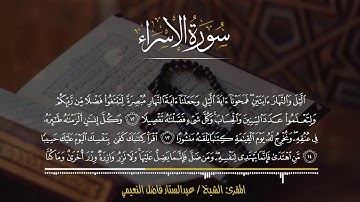 سورة الإسراء
الَّيْلَ وَالنَّهَارَ ءَايَتَيْنِ فَمَحَوْنَا ءَايَةَ الَّيْلِ وَجَعَلْنَا ءَايَةَ النَّهَارِ مُبْصِرَةً لِّتَبْتَغُوا فَضْلًا مِّن رَّبِّكُمْ
وَلِتَعْلَمُوا عَدَدَ السِّنِينَ وَالْحِسَابَ وَكُلَّ شَىْءٍ فَصَّلْنَٰهُ تَفْصِيلًا ١٢ وَكُلَّ إِنسَٰنٍ أَلْزَمْنَٰهُ طَٰٓئِرَهُۥ
فِى عُنُقِهِۦ وَنُخْرِجُ لَهُۥ يَوْمَ الْقِيَٰمَةِ كِتَٰبًا يَلْقَىٰهُ مَنشُورًا ١٣ اقْرَأْ كِتَٰبَكَ كَفَىٰ بِنَفْسِكَ الْيَوْمَ عَلَيْكَ حَسِيبًا
١٤ مَّنِ اهْتَدَىٰ فَإِنَّمَا يَهْتَدِى لِنَفْسِهِۦ وَمَن ضَلَّ فَإِنَّمَا يَضِلُّ عَلَيْهَا وَلَا تَزِرُ وَازِرَةٌ وِزْرَ أُخْرَىٰ وَمَا كُنَّا
المقرئ الشيخ / عبدالستار فاضل النعيمي